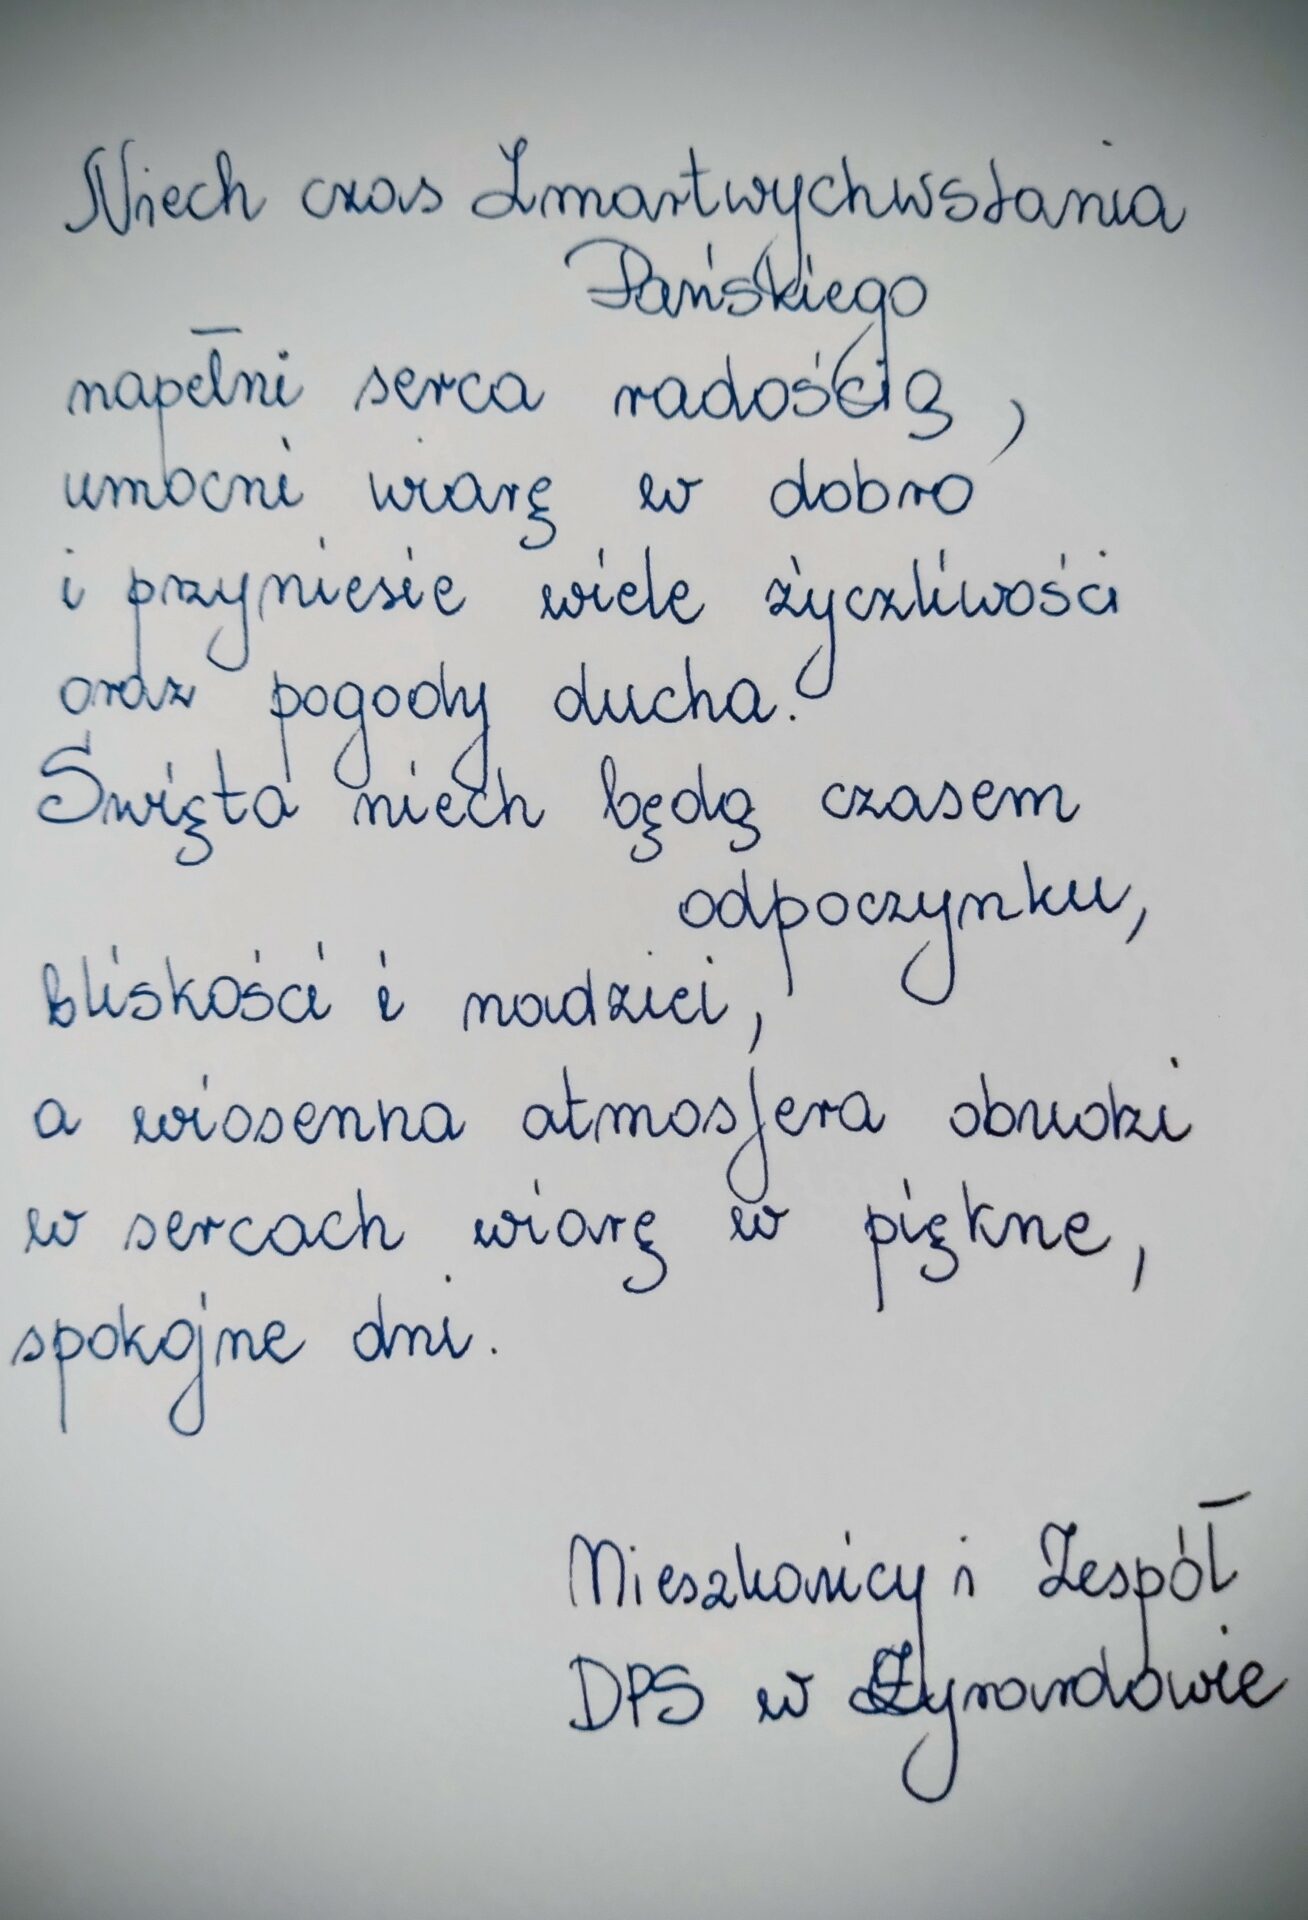 Niech czas Zmartwychwstania
Pańskiego
napełni serca radością,
umocni wiarę w dobro
i przyniesie wiele życzliwości
oraz pogody ducha.
Święta niech będą czasem
odpoczynku,
bliskości i nadziei,
a wiosenna atmosfera obudzi
w sercach wiarę w piękne,
spokojne dni.
Mieszkańcy i Zespół
DPS w Żyrardowie